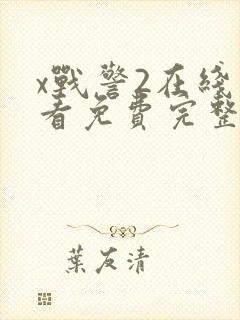 x戰警2在綫
看免費完整
葉友清